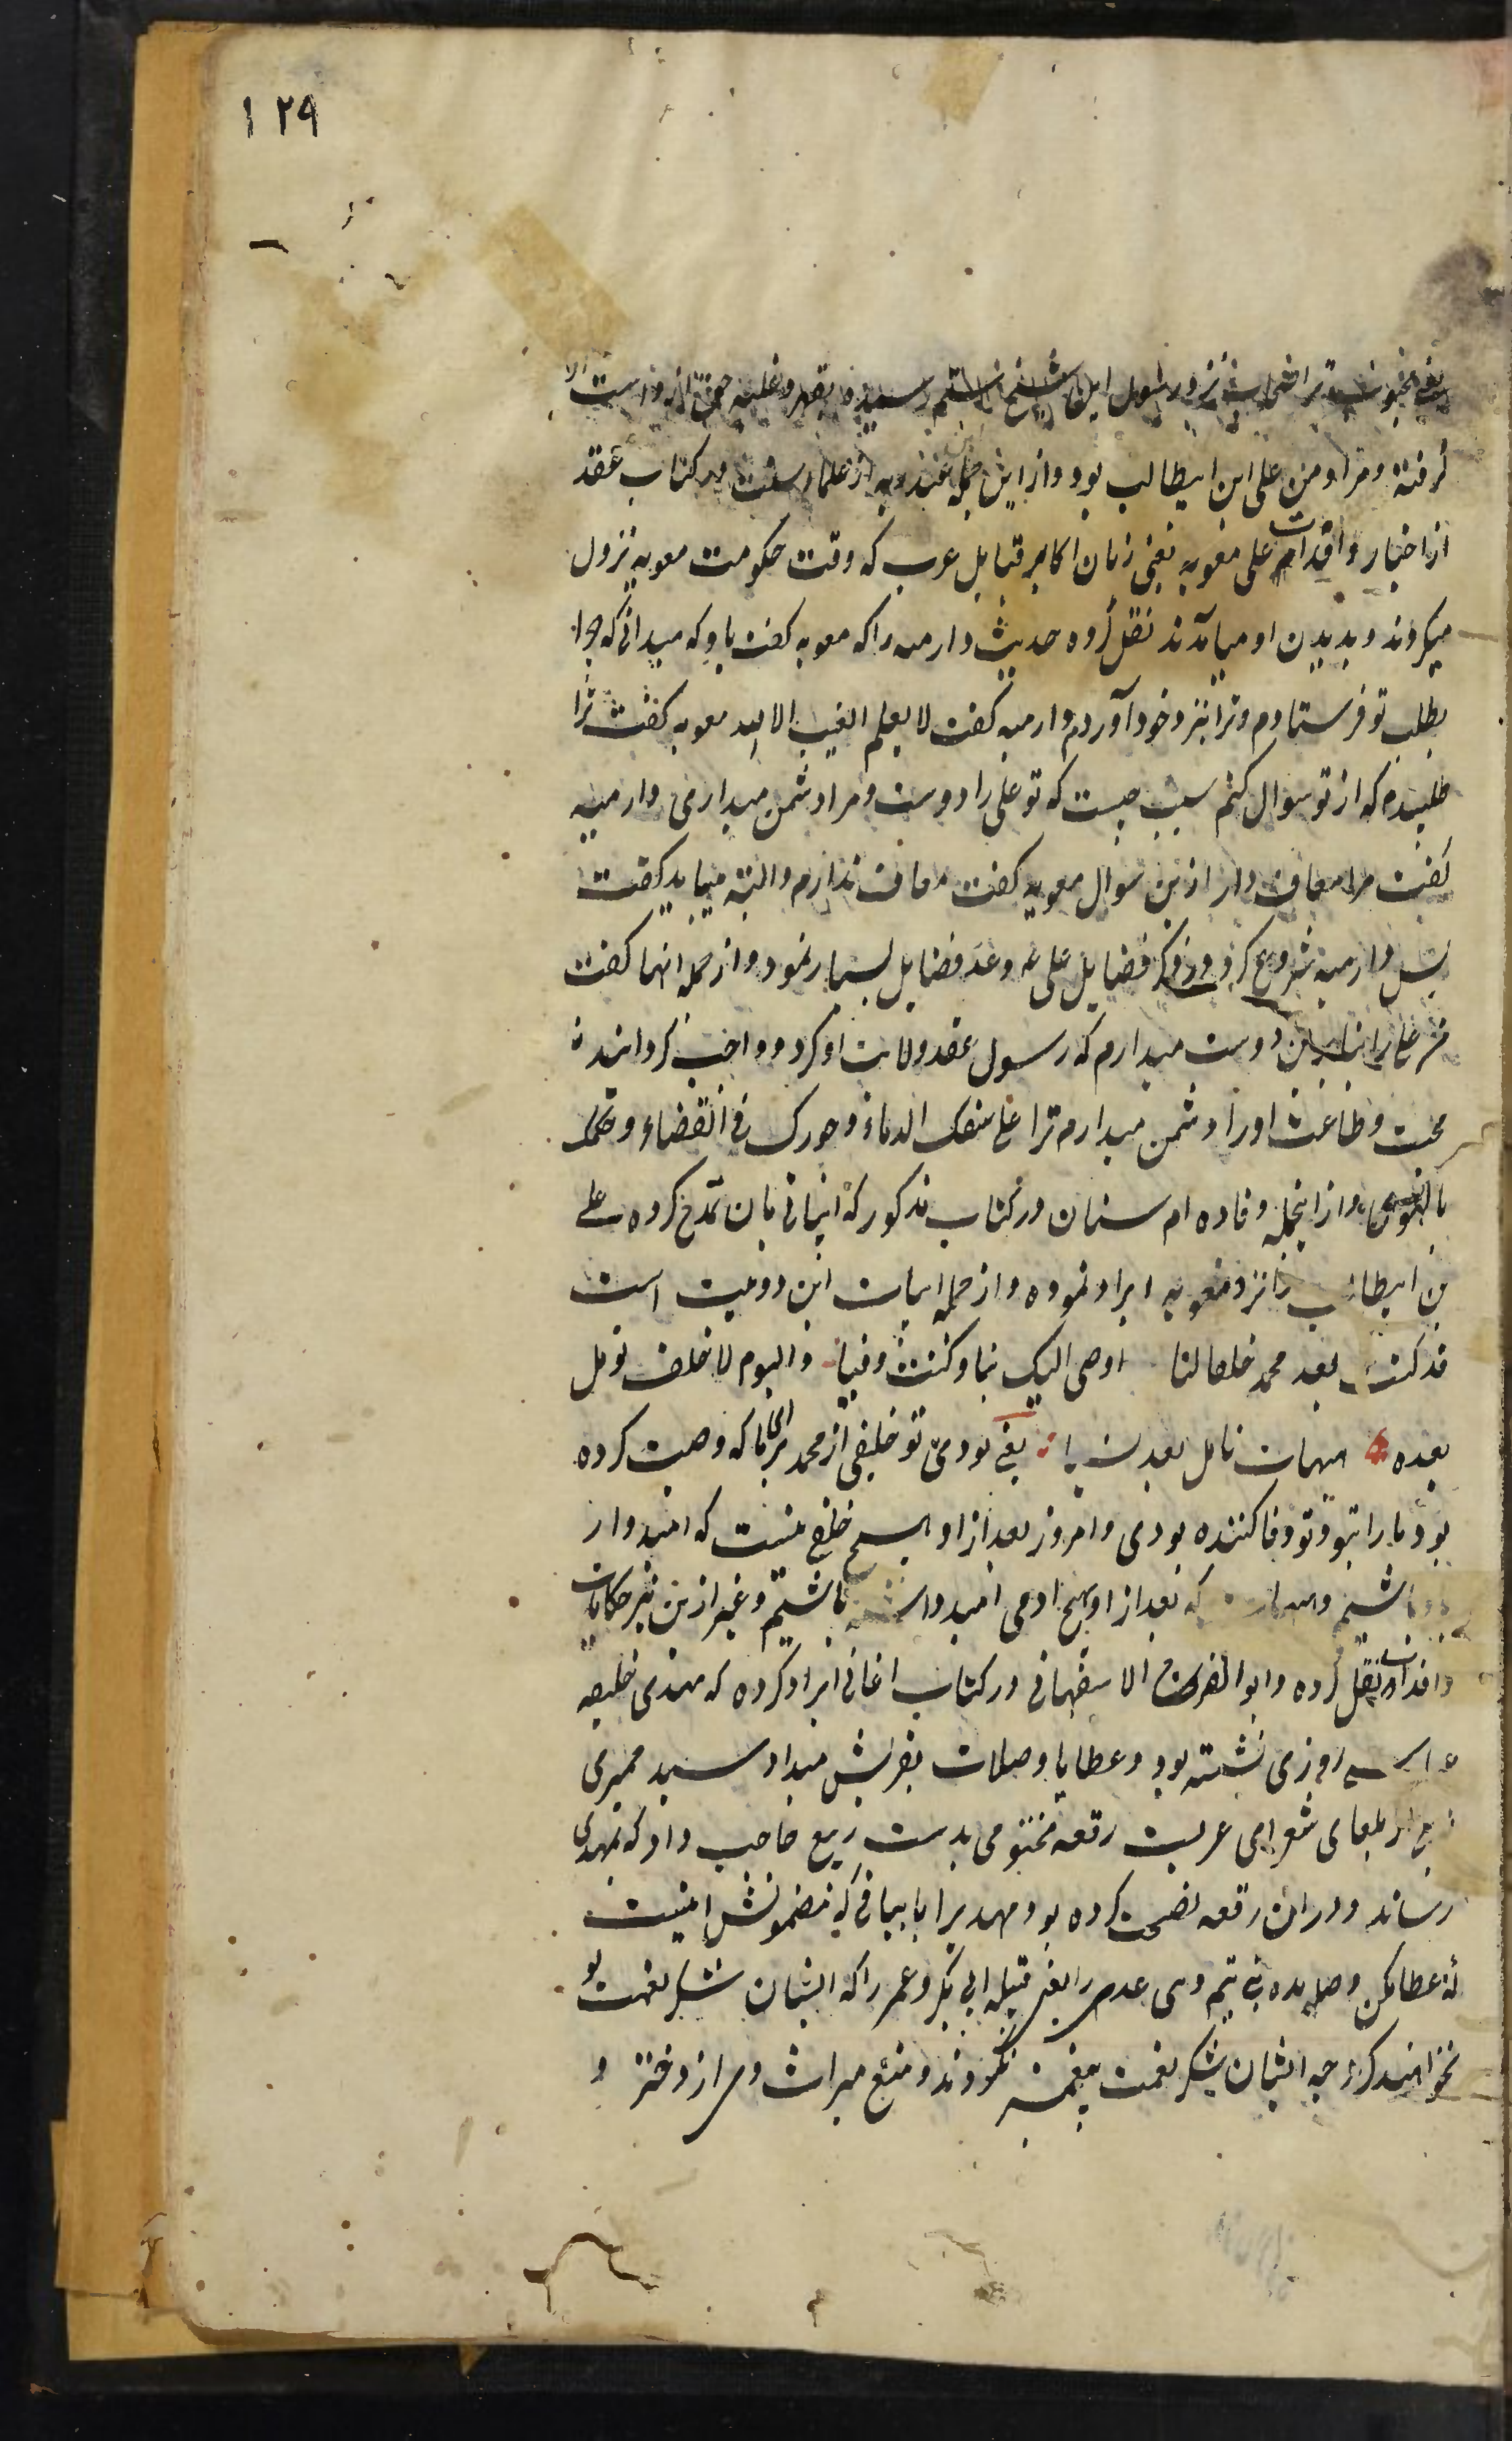 ۱۲۹
گرفته و مراد من علی ابن ابیطالب بود و از این جمله عبدربه از علماء سنت در کتاب عقد
از اخبار وافدات علی معویه یعنی زنان اکابر قبایل عرب که وقت حکومت معویه نزول
میکردند و بدیدن او میآمدند نقل کرده حدیث دارمیه را که معویه گفت باو که میدانی که چرا
بطلب تو فرستادم و ترا بنزد خود آوردم دارمیه گفت لا یعلم الغیب الا الله معویه گفت ترا
طلبیدم که از تو سوال کنم سبب چیست که تو علی را دوست و مرا دشمن میداری دارمیه
گفت مرا معاف دار ازین سوال معویه گفت معاف ندارم و البته میباید گفت
پس دارمیه شروع کرد در ذکر فضایل علی ع و عد فضایل بسیار نمود و از جمله انها گفت
من علی را بنابراین دوست میدارم که رسول عقد ولایت او کرد و واجب گردانیده
محبت و طاعت او را و دشمن میدارم ترا علی سفک الدماء و جورک فی القضاء و حکمک
بالهوی و از اینجمله وفاده ام سنان در کتاب مذکور که ابیاتی بآن مدح کرده علی
بن ابیطالب را نزد معویه ایراد نموده و از جمله ابیات این دو بیت است
قد کنت بعد محمد خلفا لنا اوصی الیک بنا و کنت وفیا والیوم لا خلف نومل
بعده هیهات نامل بعد انسیا یعنی بودی تو خلیفی از محمد برای ما که وصیت کرده
بود ما را بتو و تو وفا کننده بودی و امروز بعد از او هیچ خلفی نیست که امیدوار
باو باشیم و هیهات که بعد از او هیچ ادمی امیدوار باشیم و غیر ازین نیز حکایات
وافدات نقل کرده و ابو الفرج الاصفهانی در کتاب اغانی ایراد کرده که مهدی خلیفه
روزی نشسته بود و عطایا و صلات بقریش میداد سید حمیری
که از بلغای شعرای عربست رقعه مختومی بدست ربیع حاجب داد که بمهدی
رساند و دران رقعه نصیحت کرده بود مهدیرا بابیاتی که مضمونش اینست
که عطا مکن و صله مده بنی تیم و بنی عدی را یعنی قبیله ابی بکر و عمر را که ایشان شکر نعمت تو
نخواهند کرد چه ایشان شکر نعمت پیغمبر نکردند و منع میراث وی از دختر و